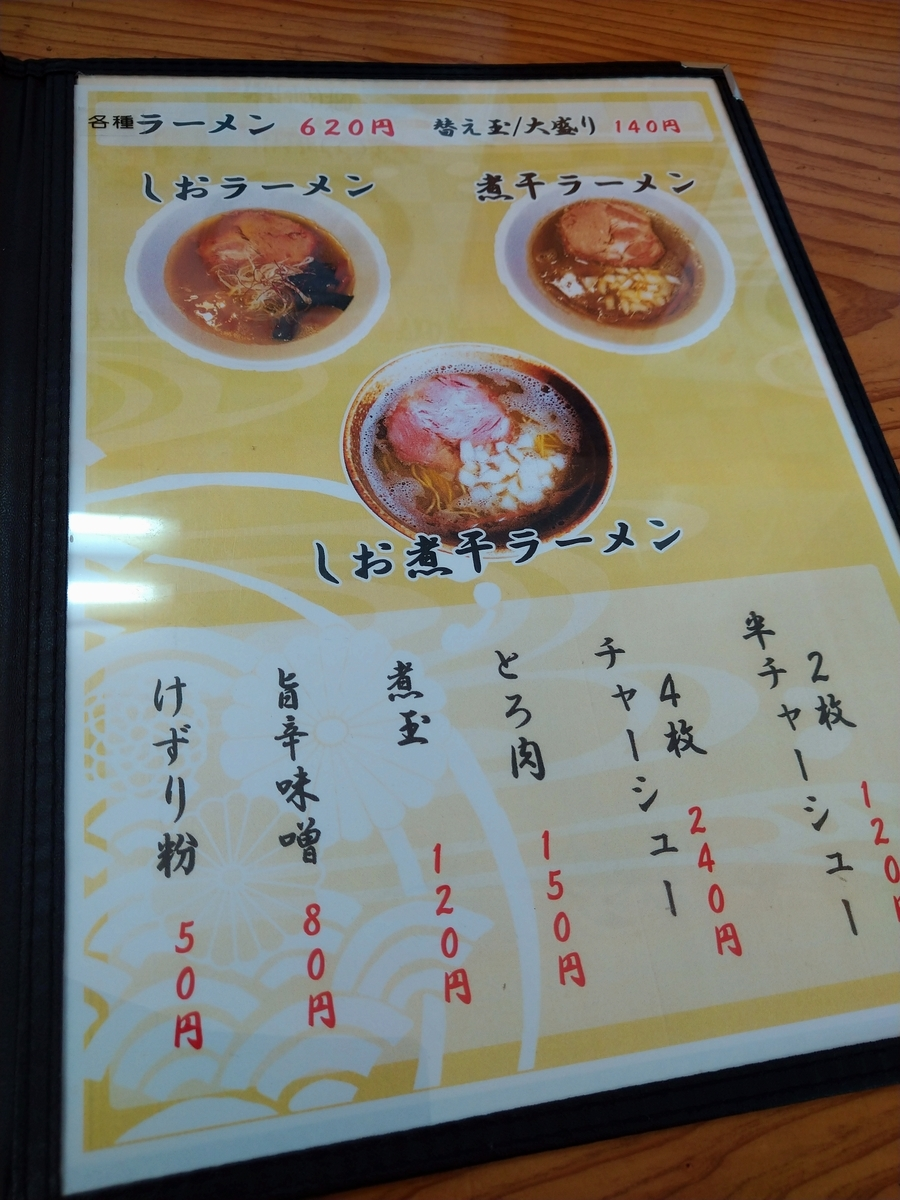 各種ラーメン 620円 替え玉/大盛り 140円
しおラーメン
煮干ラーメン
しお煮干ラーメン
半チャーシュー
2枚
120円
チャーシュー
4枚
240円
とろ肉
150円
煮玉
120円
旨辛味噌
80円
けずり粉
50円